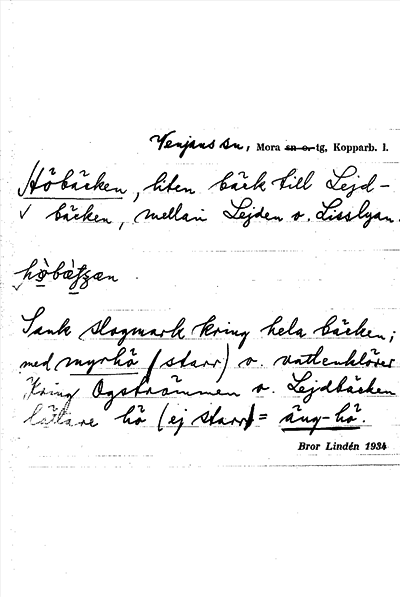 Venjans sn, Mora sn o. tg, Kopparb. l.
Höbäcken, liten bäck till Lejd-
bäcken, mellan Lejden o. Lisslyan.
Sank slogmark kring hela bäcken;
med myrhö (starr) o. vattenklöver
Kring Ogströmmen o. Lejdbäcken
lättare hö (ej starr) = äng-hö.
Bror Lindén 1934